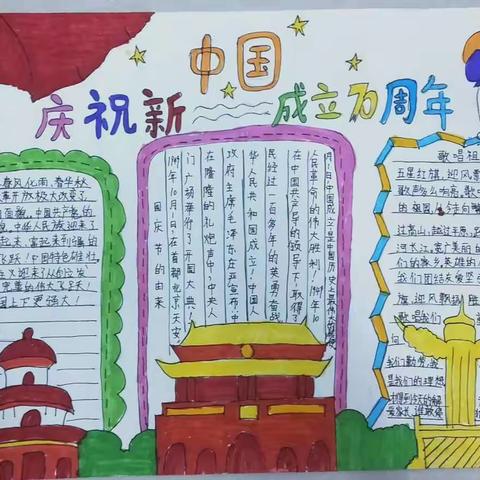 庆祝新中国成立70周年
春风化雨,春华秋
革开放极大改变了
面貌、中国共产党的
中华人民族迎来了
起来、富起来到强的
飞跃!中国特色
迎来从创立发
完善的伟大飞跃!
国上下更强大!
国庆节的由来
1949年10月1日,在首都北京天安
门广场举行了开国大典,
在隆隆的礼炮声中,中央人
政府主席毛泽东庄严宣布,中
华人民共和国成立!中国人
民经过一百多年的英勇奋战
在中国共产党的领导下,取得了
人民革命的伟大胜利!1949年10
月1日中国成立是中国历史上最伟大
歌唱祖
五星红旗,迎风飘
歌声多么响亮,歌唱
的祖国,从今走向繁
过高山,越过平原,跨
河长江,宽广美丽的
们的家乡,英雄的
我们团结友爱坚
旗迎风飘扬,胜
歌唱我们
我们勤劳,我
是我们的理想